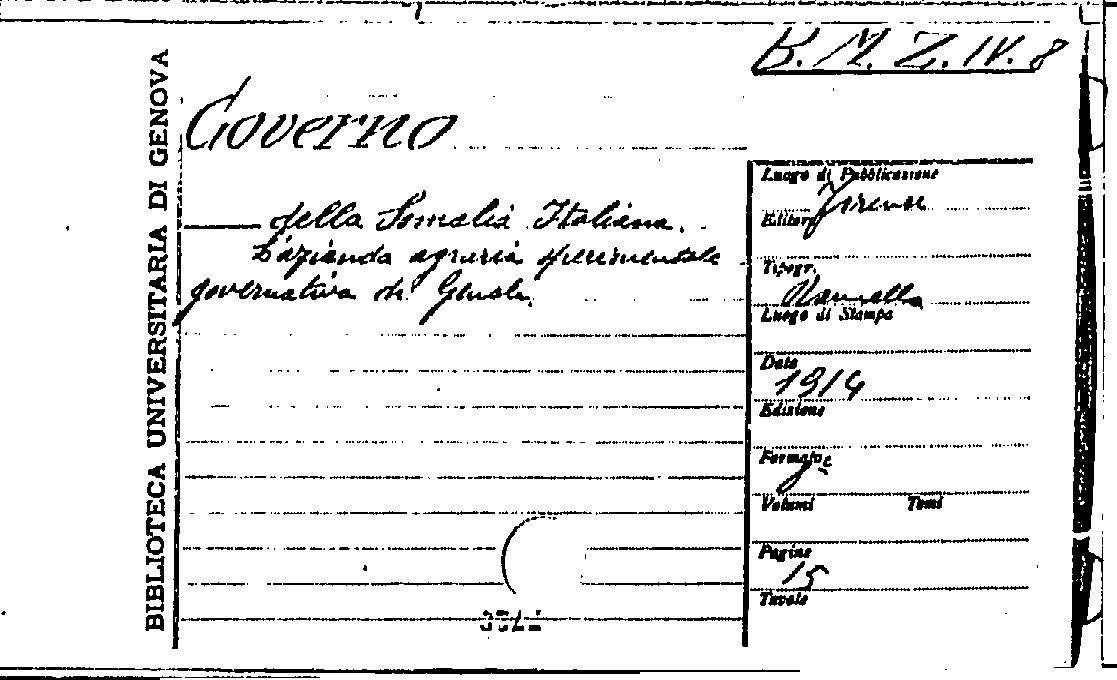 B.M.Z.IV.8
BIBLIOTECA UNIVERSITARIA DI GENOVA
Governo
della Somalia Italiana.
L'azienda agraria sperimentale
governativa di Genale.
Luogo di Pubblicazione
Firenze
Editore
Tipogr.
Luogo di Stampa
Data
1914
Edizione
Formato
Volumi Tomi
Pagine
15
Tavole